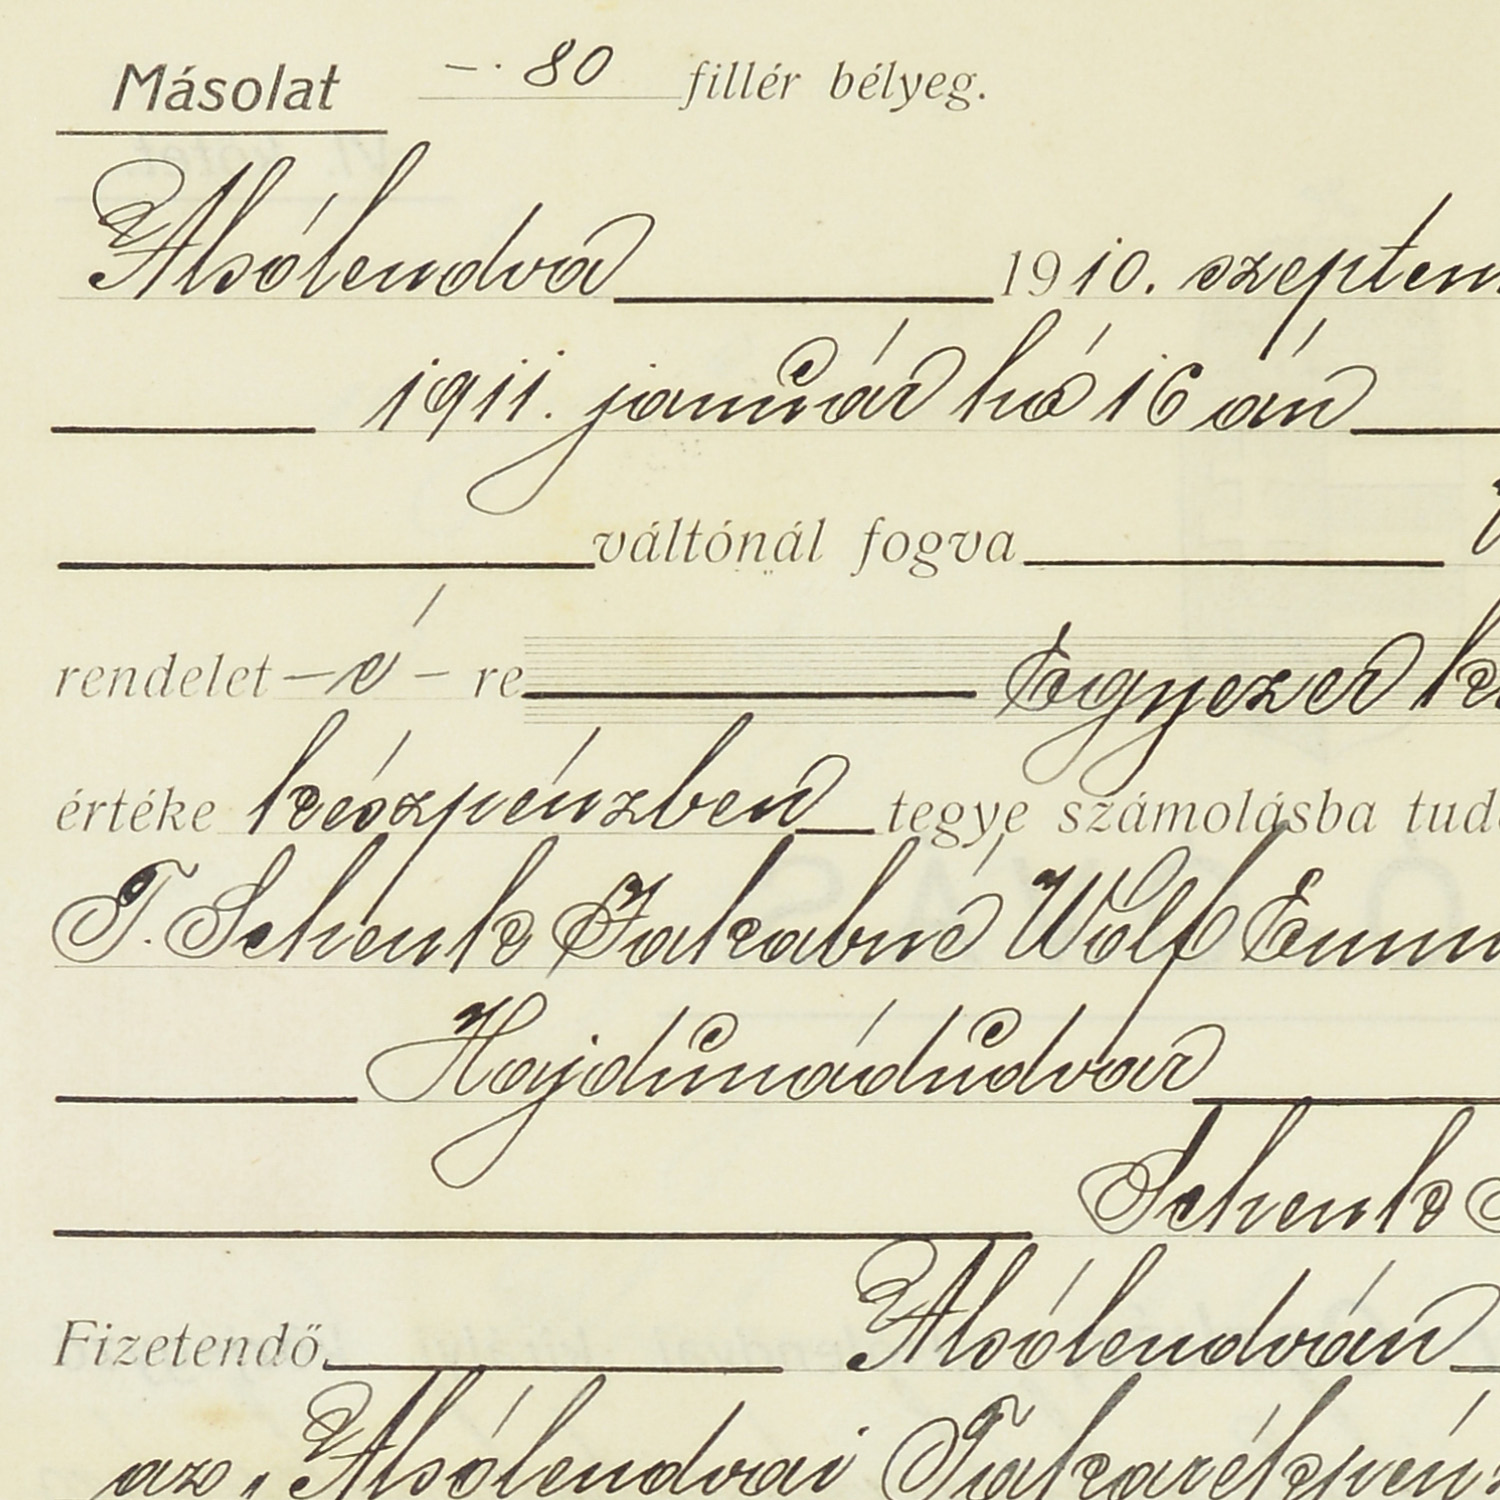 Másolat —. 80 fillér bélyeg.
Alsólendva 1910. szeptem
1911. január hó 16 án
váltónál fogva
rendelet – é – re Egyezer k
értéke készpénzben tegye számolásba tud
T. Schenk Jakabné Wolf Emm
Hajdunádudvar
Schenk
Fizetendő Alsólendván
az „Alsólendvai Takarékpénz